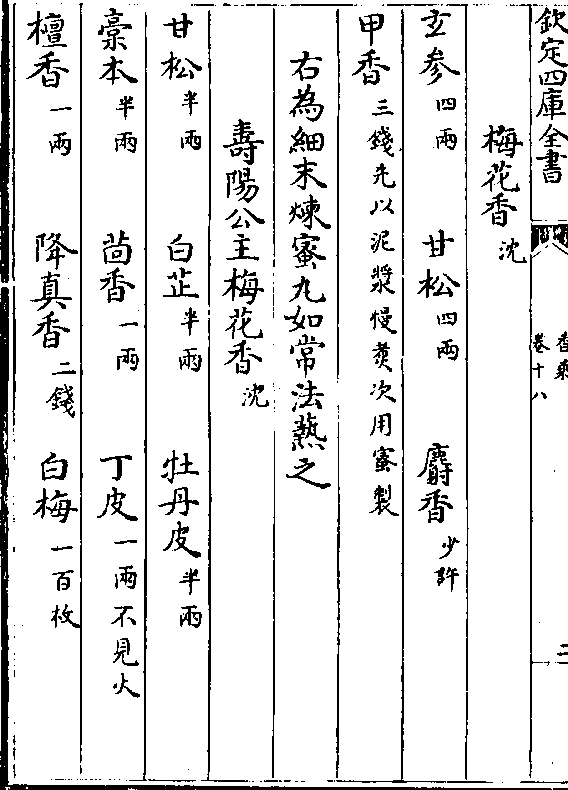 欽定四庫全書
香乘
卷十八
二
梅花香沈
玄參四兩 甘松四兩 麝香少許
甲香三錢先以泥漿慢煑次用蜜製
右為細末煉蜜丸如常法爇之
壽陽公主梅花香沈
甘松半兩 白芷半兩 牡丹皮半兩
藁本半兩 茴香一兩 丁皮一兩不見火
檀香一兩 降真香二錢 白梅一百枚